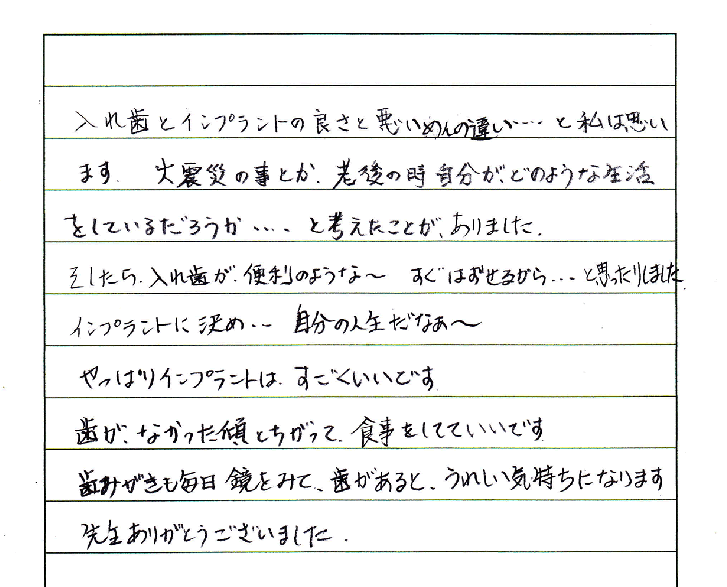 入れ歯とインプラントの良さと悪いめんの違い‥‥と私は思い
ます. 大震災の事とか、老後の時自分が、どのような生活
をしているだろうか‥‥と考えたことが、ありました.
そしたら、入れ歯が、便利のような〜 すぐはずせるから‥‥と思ったりしました
インプラントに決め‥ 自分の人生だなぁ〜
やっぱりインプラントは、すごくいいです
歯が、なかった頃とちがって、食事をしてていいです
歯みがきも毎日鏡をみて、歯があると、うれしい気持ちになります
先生ありがとうございました.